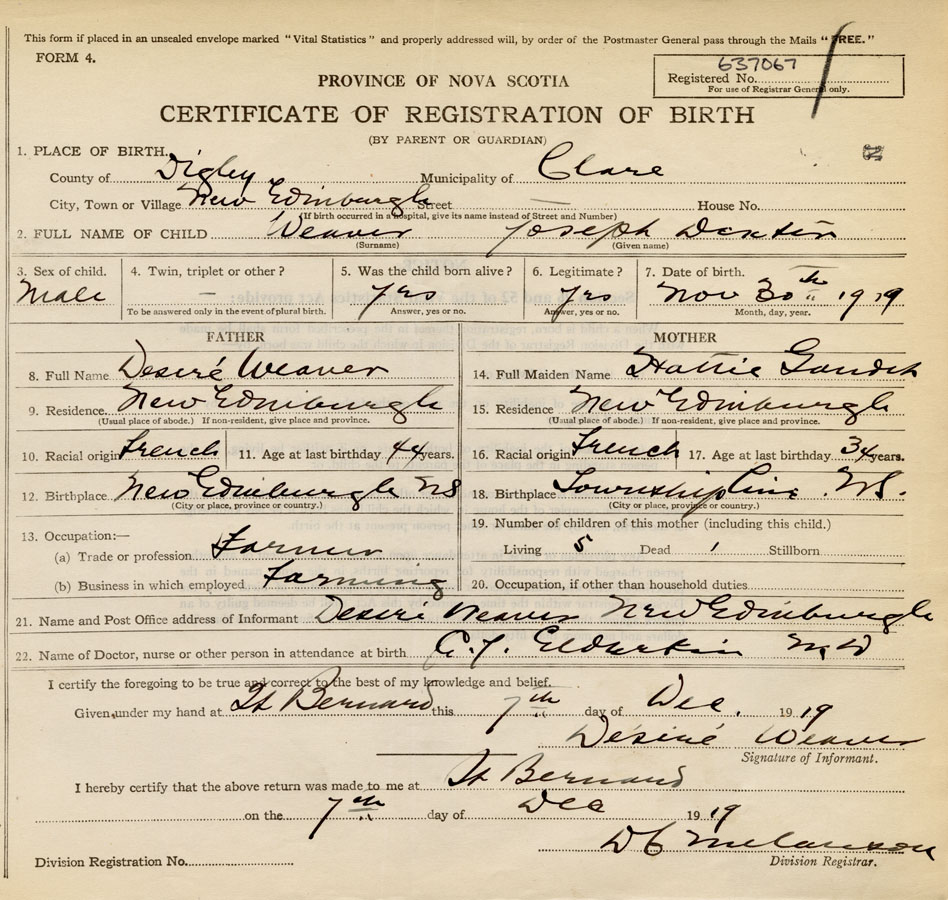 This form if placed in an unsealed envelope marked "Vital Statistics" and properly addressed will, by order of the Postmaster General pass through the Mails "FREE."
FORM 4.
637067
Registered No.
For use of Registrar General only.
PROVINCE OF NOVA SCOTIA
CERTIFICATE OF REGISTRATION OF BIRTH
(BY PARENT OR GUARDIAN)
1. PLACE OF BIRTH.
County of Digby Municipality of Clare
City, Town or Village New Edinburgh Street — House No.
(If birth occurred in a hospital, give its name instead of Street and Number)
2. FULL NAME OF CHILD Weaver Joseph
(Surname) (Given name)
3. Sex of child. 4. Twin, triplet or other? 5. Was the child born alive? 6. Legitimate? 7. Date of birth.
Male — Yes Yes Nov 30th 1919
To be answered only in the event of plural birth. Answer, yes or no. Answer, yes or no. Month, day, year.
FATHER MOTHER
8. Full Name Desiré Weaver 14. Full Maiden Name Hattie
9. Residence New Edinburgh 15. Residence New Edinburgh
(Usual place of abode.) If non-resident, give place and province. (Usual place of abode.) If non-resident, give place and province.
10. Racial origin French 11. Age at last birthday 44 years. 16. Racial origin French 17. Age at last birthday 34 years.
12. Birthplace New Edinburgh NS 18. Birthplace Township Line N.S.
(City or place, province or country.) (City or place, province or country.)
13. Occupation:— 19. Number of children of this mother (including this child.)
(a) Trade or profession Farmer Living 5 Dead 1 Stillborn
(b) Business in which employed Farming 20. Occupation, if other than household duties
21. Name and Post Office address of Informant Desiré Weaver New Edinburgh
22. Name of Doctor, nurse or other person in attendance at birth M.D
I certify the foregoing to be true and correct to the best of my knowledge and belief.
Given under my hand at St Bernard this 7th day of Dec. 1919
Désiré Weaver
Signature of Informant.
I hereby certify that the above return was made to me at St Bernard
on the 7th day of Dec 1919
Melanson
Division Registrar.
Division Registration No.